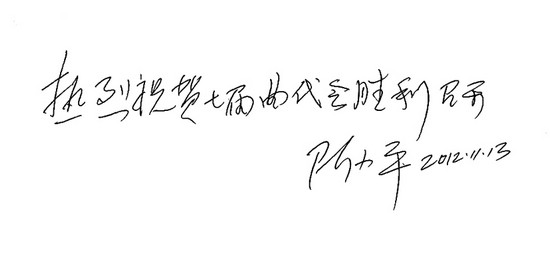 热烈祝贺七届曲代会胜利召开
陈小平 2012.11.13